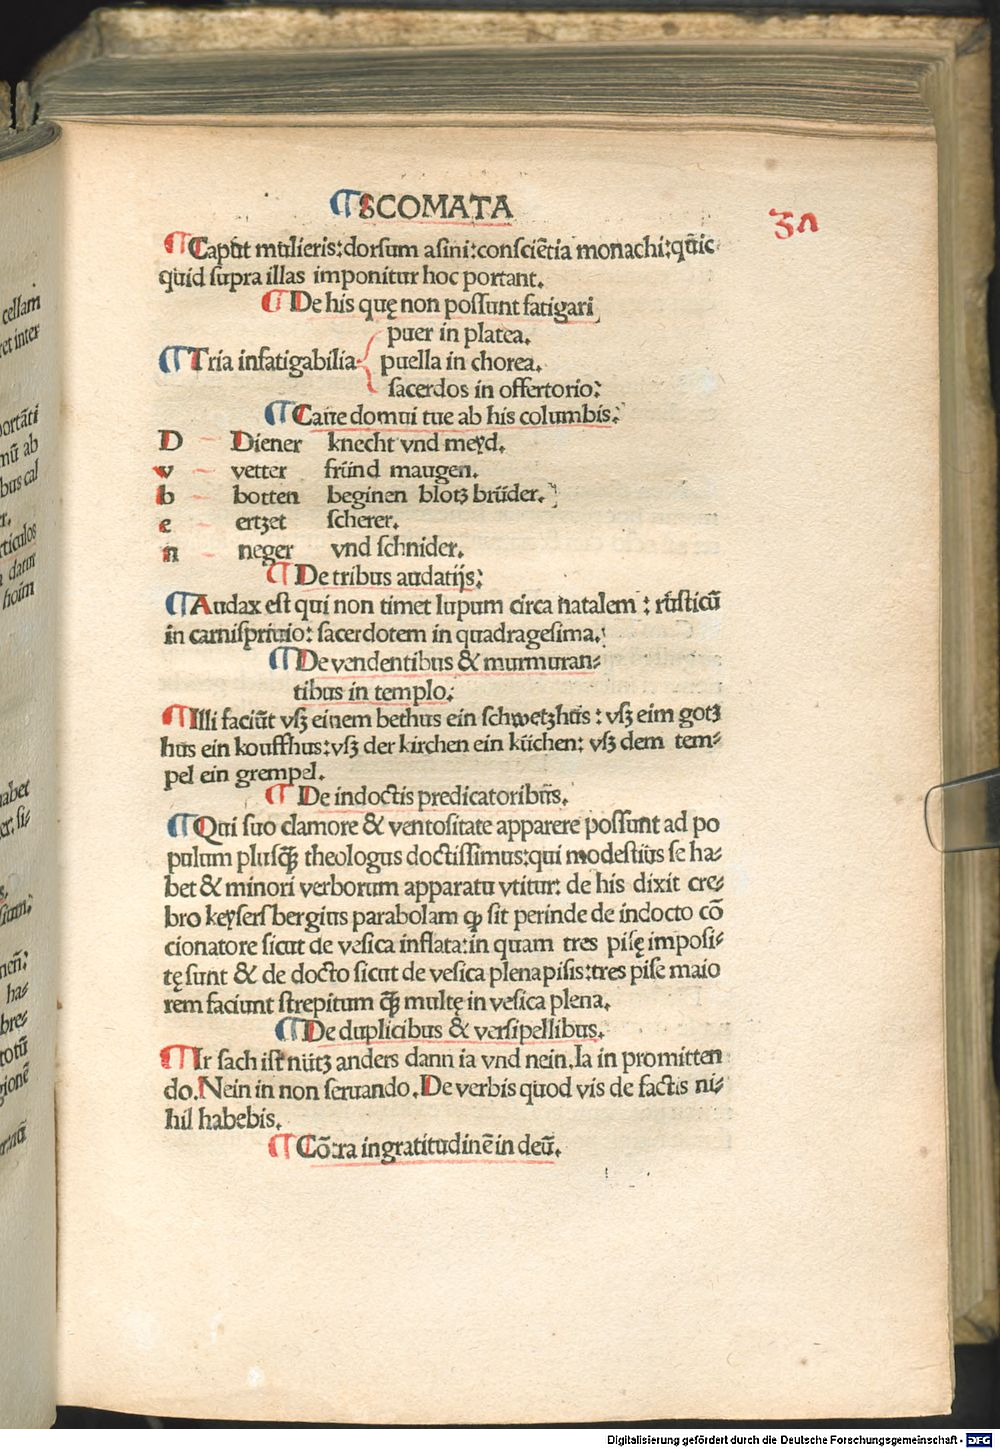 ¶SCOMATA
3n
¶Caput mulieris:dorsum asini:consciẽtia monachi:qũic
quid supra illas imponitur hoc portant.
¶De his quę non possunt fatigari
puer in platea.
¶Tria infatigabilia puella in chorea.
sacerdos in offertorio:
¶Caue domui tue ab his columbis:
D Diener knecht vnd meyd.
v vetter fründ maugen.
b botten beginen blotz brüder.
e ertzet scherer.
n neger vnd schnider.
¶De tribus audatijs:
¶Audax est qui non timet lupum circa natalem : rusticũ
in carnispriuio: sacerdotem in quadragesima.
¶De vendentibus & murmuran⸗
tibus in templo:
¶Illi faciũt vsz einem bethus ein schwetzhus : vsz eim gotz
hus ein kouffhus:vsz der kirchen ein küchen: vsz dem tem⸗
pel ein grempel.
¶De indoctis predicatoribus.
¶Qui suo clamore & ventositate apparere possunt ad po
pulum plusq̃ꝫ theologus doctissimus:qui modestius se ha⸗
bet & minori verborum apparatu vtitur: de his dixit cre⸗
bro keysersbergius parabolam ꝙ sit perinde de indocto cõ
cionatore sicut de vesica inflata:in quam tres pisę imposi⸗
tę sunt & de docto sicut de vesica plena pisis:tres pise maio
rem faciunt strepitum q̃ꝫ multę in vesica plena.
¶De duplicibus & versipellibus.
¶Ir sach ist nütz anders dann ia vnd nein.Ia in promitten
do.Nein in non seruando.De verbis quod vis de factis ni⸗
hil habebis.
¶Cõtra ingratitudinẽ in deũ.
cellam
ret inter
portãti
mũ ab
bus cal
r.
rticulos
darm
hoim
habet
er. si⸗
s.
sium:
nen̄:
ha⸗
bre⸗
totũ
gionẽ
Digitalisierung gefördert durch die Deutsche Forschungsgemeinschaft - DFG